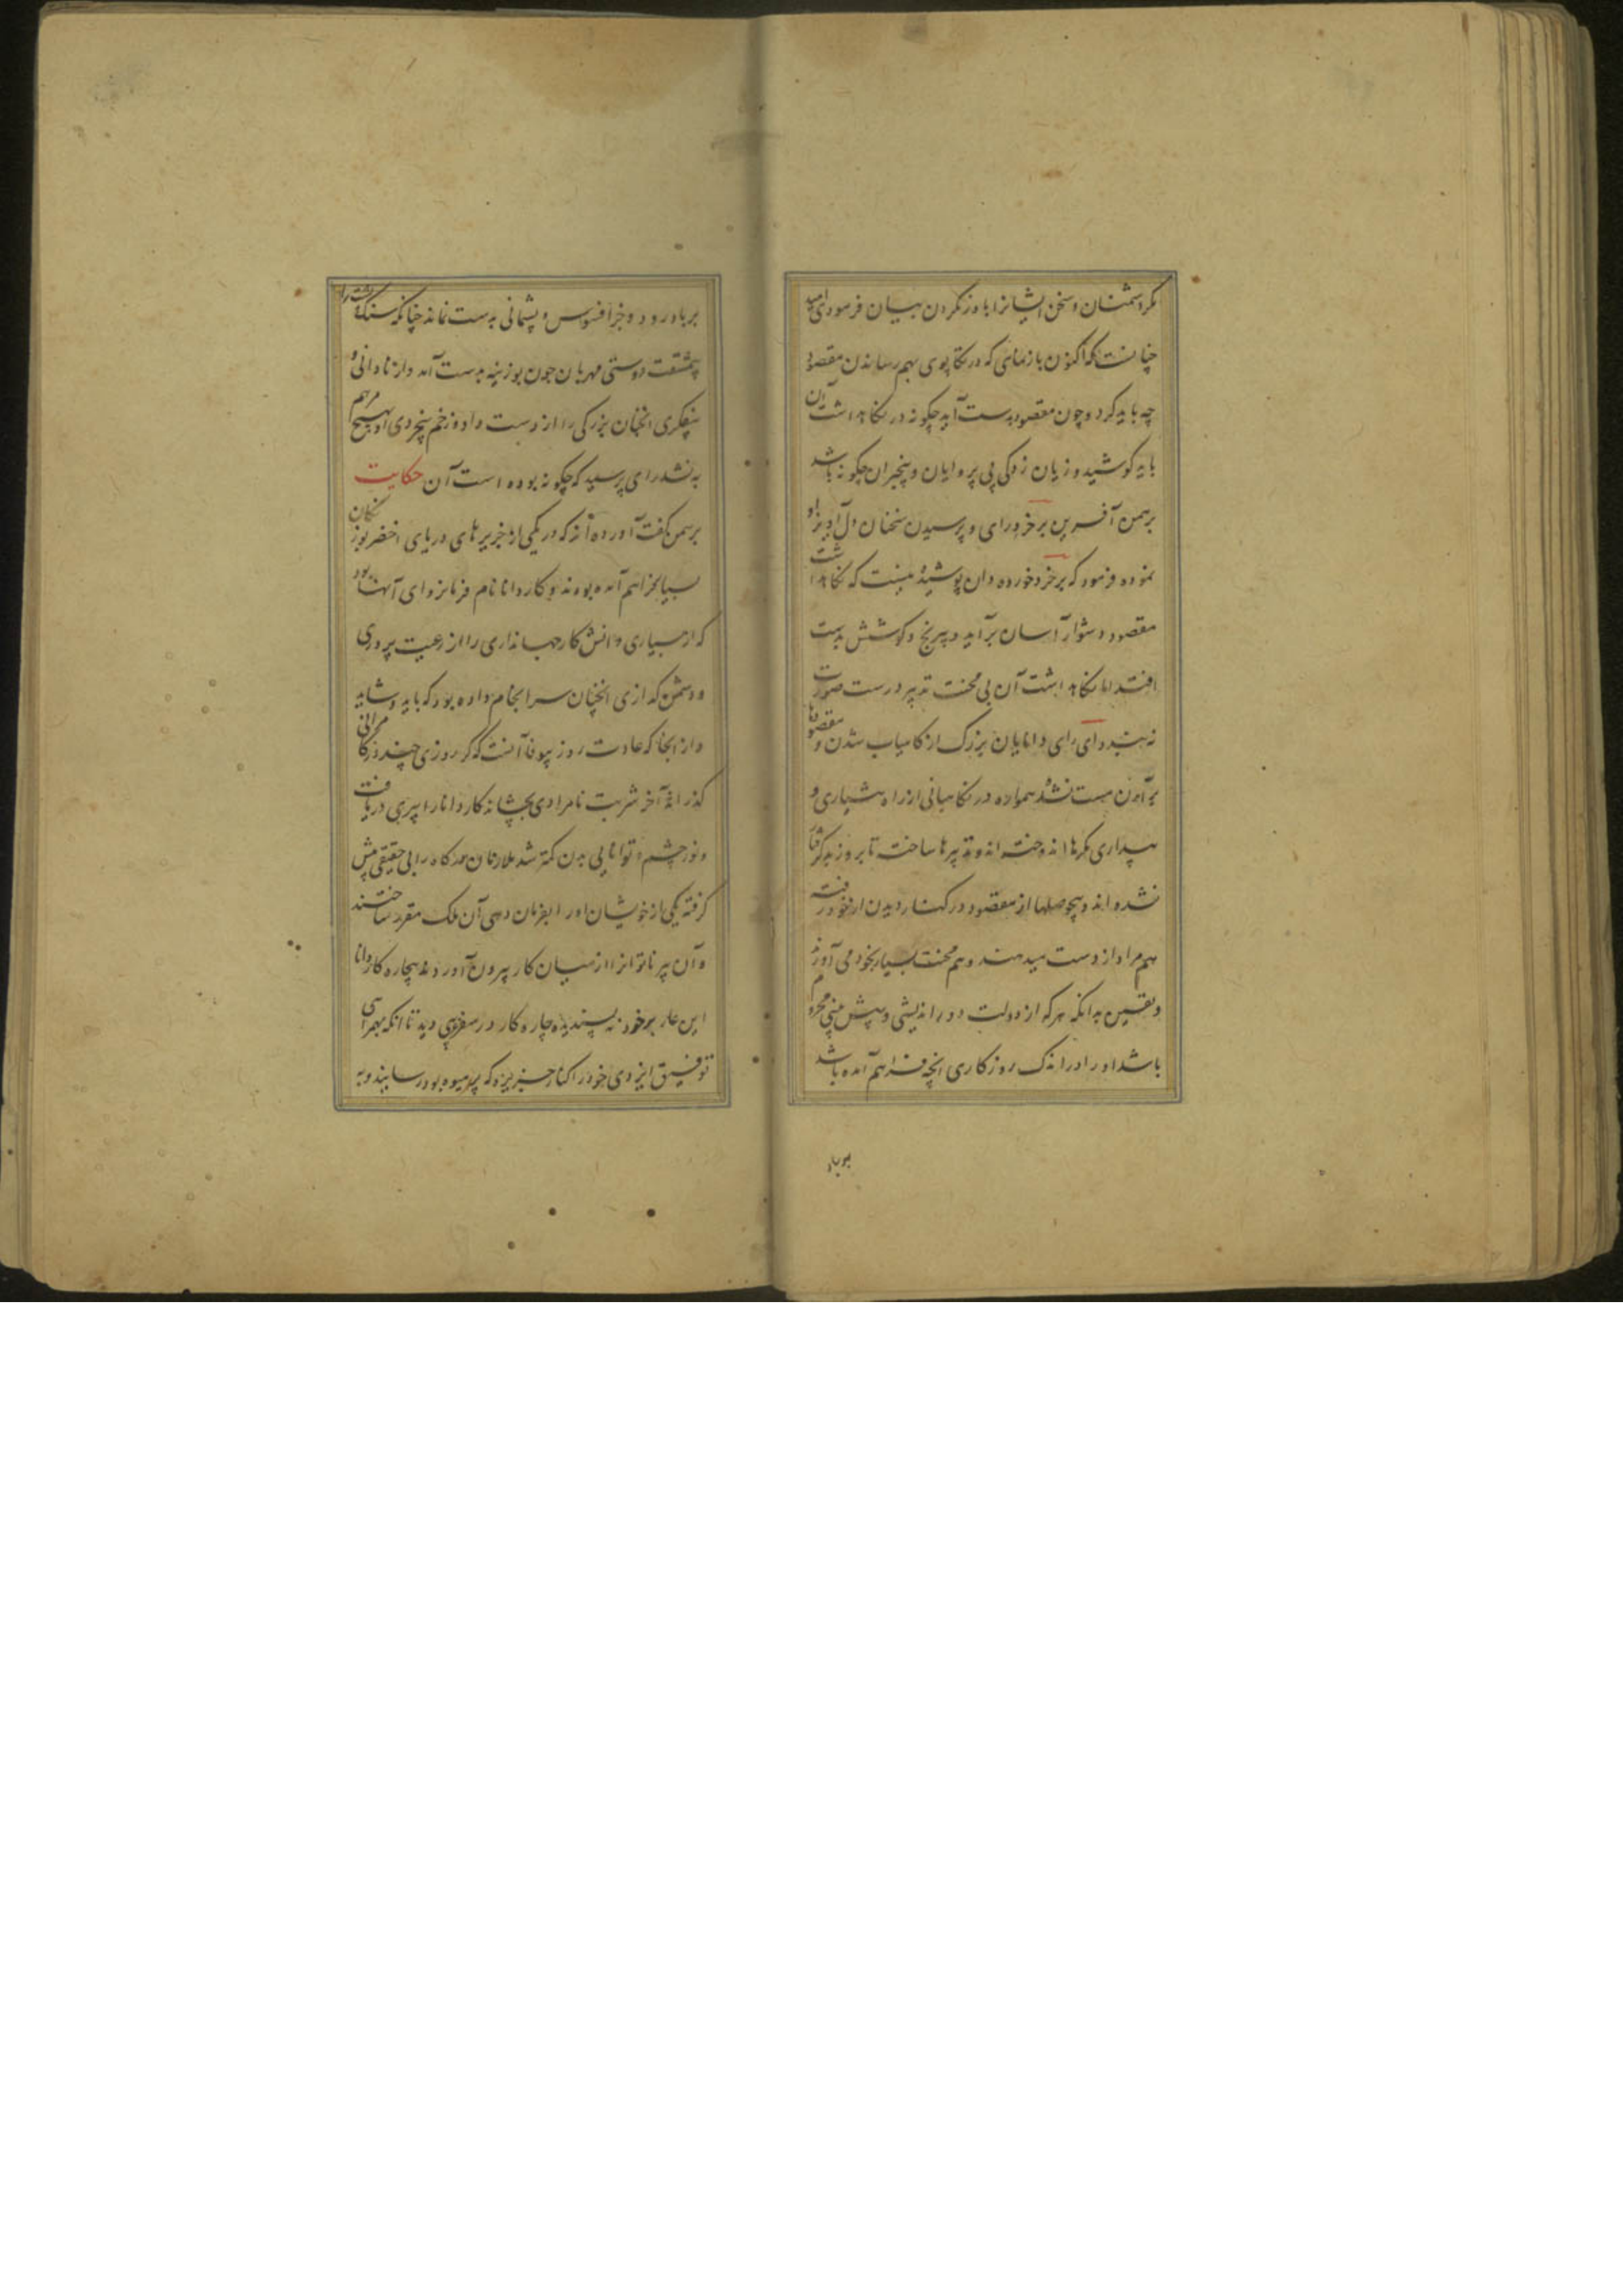 مکر دشمنان و سخن ایشانرا باور نکردن بیان فرمودی امید
چنانست که اکنون بازنمای که در تکاپوی بهم رساندن مقصود
چه باید کرد و چون مقصود بدست آید چگونه در نگاهداشت آن
باید کوشید و زیان زدگی بی پروایان و بیخبران چگونه باشد
برهمن آفرین بر خرد رای و پرسیدن سخنان دل آویز او
نموده فرمود که بر خرد خورده دان پوشیده نیست که نگاهداشت
مقصود دشوار آسان برآید و بیرنج و کوشش بدست
افتد اما نگاهداشت آن بی محنت تدبیر درست صورت
نه بندد ای رای دانایان بزرگ از کامیاب شدن و مقصودها
برآمدن مست نشده همواره در نگاهبانی از راه هشیاری و
بیداری مکرها اندوخته اند و تدبیرها ساخته تا بروز بد گرفتار
نشده اند و بیحوصلها از مقصود در کنار دیدن از خود رفته
هم مراد از دست میدهند و هم محنت بسیار بخود می آورند
و یقین بدانکه هر که از دولت دور اندیشی و پیش بینی محروم
باشد او را در اندک روزگاری آنچه فراهم آمده باشد
بر باد
بر باد رود و جز افسوس و پشیمانی بدست نماند چنانکه سنگ پشت را
بیمشقت دوستی مهربان چون بوزینه بدست آمد و از نادانی و
بیفکری انچنان بزرگی را از دست داد و زخم بیخردی او بهیچ مرهم
به نشد رای پرسید که چگونه بوده است آن حکایت
برهمن گفت آورده اند که در یکی از جزیرهای دریای اخضر بوزنگان
بسیار فراهم آمده بودند و کاردانا نام فرمانروای آنها بود
که از بسیاری دانش کار جهانداری را از رعیت پروری
و دشمن گدازی انچنان سرانجام داده بود که باید و شاید
و از آنجا که عادت روز بیوفا آنست که گر روزی چند در کامرانی
گذراند آخر شربت نامرادی بچشاند کاردانا را پیری دریافت
و نور چشم و توانایی بدن کمتر شد ملازمان درگاه راه بی حقیقی پیش
گرفته یکی از خویشان او را بفرمان دهی آن ملک مقرر ساختند
و آن پیر ناتوانرا از میان کار بیرون آوردند بیچاره کاردانا
این عار بر خود نه پسندیده چاره کار در سفر دید تا آنکه بهمراهی
توفیق ایزدی خود را کنار جزیره که پر میوه بود رسانید و به